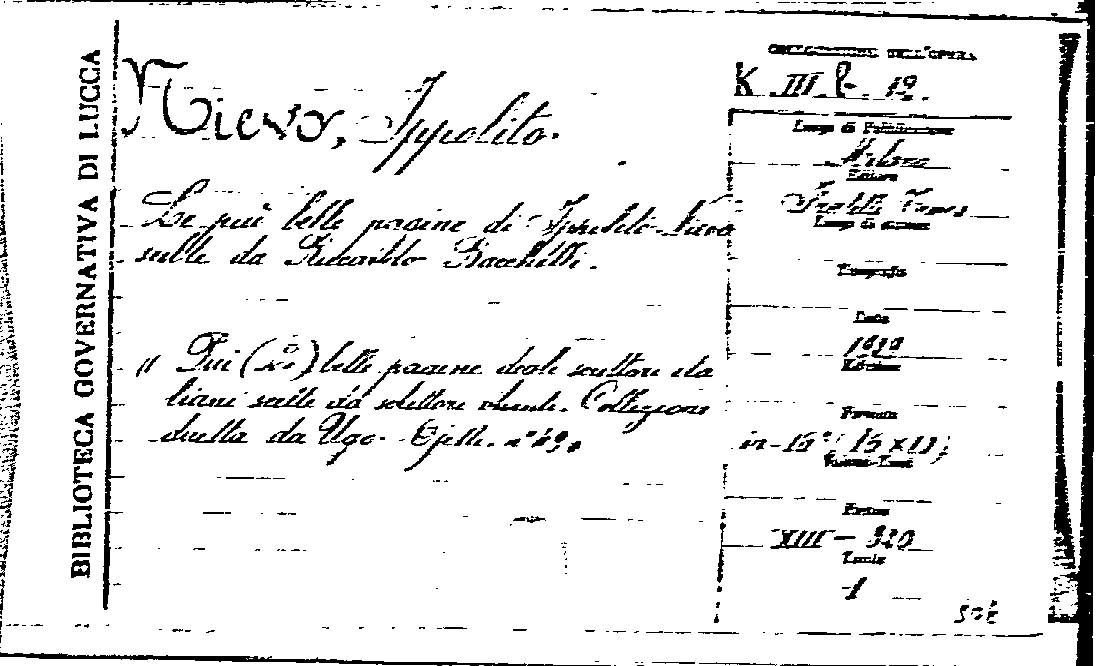 BIBLIOTECA GOVERNATIVA DI LUCCA
Nievo, Ippolito.
Le più belle pagine di Ippolito Nievo
scelte da Riccardo Bacchelli.
" Più (sic) belle pagine degli scrittori ita
liani scelte da scrittori viventi. Collezione
diretta da Ugo Ojetti. n° 49.
COLLOCAZIONE DELL'OPERA
K. III. 12.
Luogo di Pubblicazione
Milano
Editore
Fratelli Treves
Luogo di stampa
Tipografo
Data
Edizione
Formato
in-16° (16 x 11)
Pagine
XIII - 320
Tavole
1